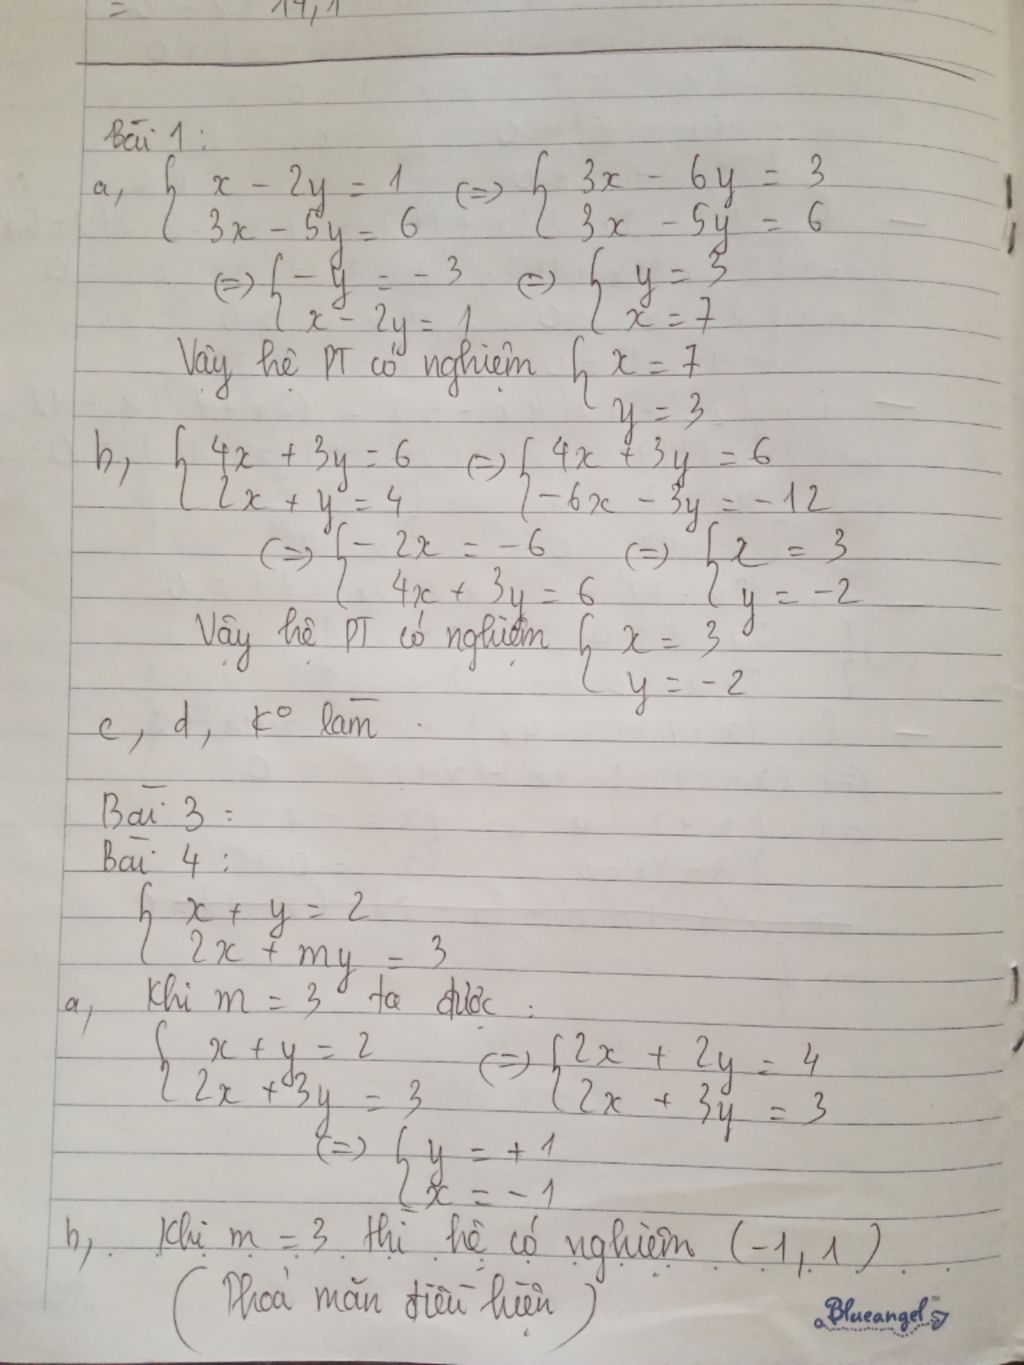 = 14,1
Bài 1:
a, { x - 2y = 1 (=) { 3x - 6y = 3
3x - 5y = 6 3x - 5y = 6
(=) { - y = - 3 (=) { y = 3
x - 2y = 1 x = 7
Vậy hệ PT có nghiệm { x = 7
y = 3
b, { 4x + 3y = 6 (=) { 4x + 3y = 6
2x + y = 4 -6x - 3y = -12
(=) { - 2x = -6 (=) { x = 3
4x + 3y = 6 y = -2
Vậy hệ PT có nghiệm { x = 3
y = -2
c, d, K° làm
Bài 3:
Bài 4:
{ x + y = 2
2x + my = 3
a, Khi m = 3 ta được :
{ x + y = 2 (=) { 2x + 2y = 4
2x + 3y = 3 2x + 3y = 3
(=) { y = + 1
x = - 1
b, Khi m = 3 thì hệ có nghiệm (-1, 1)
(Thoả mãn điều kiện)
Blueangel